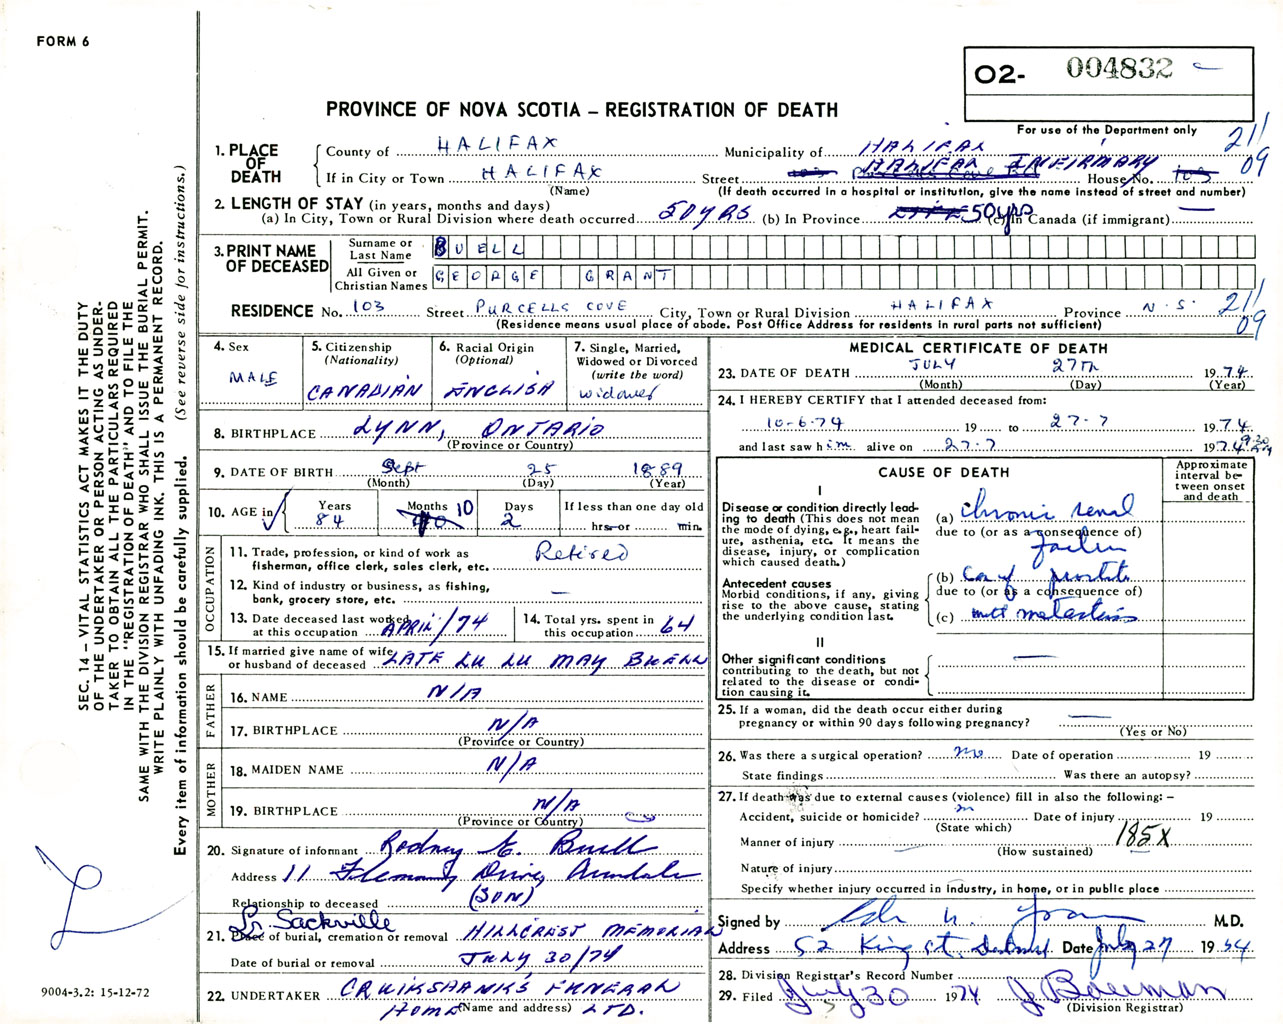 FORM 6
O2- 004832
PROVINCE OF NOVA SCOTIA – REGISTRATION OF DEATH
For use of the Department only
211
09
1. PLACE OF DEATH
County of HALIFAX Municipality of HALIFAX
HALIFAX INFIRMARY
If in City or Town HALIFAX Street Purcells Cove Rd House No. 103
(Name) (If death occurred in a hospital or institution, give the name instead of street and number)
2. LENGTH OF STAY (in years, months and days)
(a) In City, Town or Rural Division where death occurred 50 YRS (b) In Province LIFE 50 yrs (c) In Canada (if immigrant) —
3. PRINT NAME OF DECEASED
Surname or Last Name BUELL
All Given or Christian Names GEORGE GRANT
RESIDENCE No. 103 Street PURCELLS COVE City, Town or Rural Division HALIFAX Province N.S.
211
09
(Residence means usual place of abode. Post Office Address for residents in rural parts not sufficient)
4. Sex
MALE
5. Citizenship
(Nationality)
CANADIAN
6. Racial Origin
(Optional)
ENGLISH
7. Single, Married,
Widowed or Divorced
(write the word)
Widower
8. BIRTHPLACE LYNN, ONTARIO
(Province or Country)
9. DATE OF BIRTH Sept 25 1889
(Month) (Day) (Year)
10. AGE in
Years 84
Months 10
Days 2
If less than one day old
hrs. or min.
OCCUPATION
11. Trade, profession, or kind of work as
fisherman, office clerk, sales clerk, etc. Retired
12. Kind of industry or business, as fishing,
bank, grocery store, etc. —
13. Date deceased last worked
at this occupation APRIL/74
14. Total yrs. spent in
this occupation 64
15. If married give name of wife
or husband of deceased LATE LU LU MAY BUELL
FATHER
16. NAME N/A
17. BIRTHPLACE N/A
(Province or Country)
MOTHER
18. MAIDEN NAME N/A
19. BIRTHPLACE N/A
(Province or Country)
20. Signature of informant Rodney E. Buell
Address 11 Flemming Drive, Armdale
Relationship to deceased (SON)
Lr. Sackville
21. Place of burial, cremation or removal HILLCREST MEMORIAL
Date of burial or removal JULY 30/74
22. UNDERTAKER CRUIKSHANKS FUNERAL
HOME (Name and address) LTD.
MEDICAL CERTIFICATE OF DEATH
23. DATE OF DEATH JULY 27TH 1974
(Month) (Day) (Year)
24. I HEREBY CERTIFY that I attended deceased from:
10-6-74 19 to 27-7 1974
and last saw him alive on 27-7 1974
CAUSE OF DEATH
Approximate
interval be-
tween onset
and death
I
Disease or condition directly lead-
ing to death (This does not mean
the mode of dying, e.g., heart fail-
ure, asthenia, etc. It means the
disease, injury, or complication
which caused death.)
(a) chronic renal
due to (or as a consequence of)
failure
Antecedent causes
Morbid conditions, if any, giving
rise to the above cause, stating
the underlying condition last.
(b) Ca of prostate
due to (or as a consequence of)
(c) mult metastasis
II
Other significant conditions
contributing to the death, but not
related to the disease or condi-
tion causing it.
—
25. If a woman, did the death occur either during
pregnancy or within 90 days following pregnancy? —
(Yes or No)
26. Was there a surgical operation? no Date of operation 19
State findings Was there an autopsy?
27. If death was due to external causes (violence) fill in also the following: –
Accident, suicide or homicide? Date of injury 19
(State which)
Manner of injury 185X
(How sustained)
Nature of injury
Specify whether injury occurred in industry, in home, or in public place
Signed by M.D.
Address 52 King St. Date July 27 19
28. Division Registrar's Record Number
29. Filed July 30 1974 J Bowman
(Division Registrar)
SEC. 14 – VITAL STATISTICS ACT MAKES IT THE DUTY
OF THE UNDERTAKER OR PERSON ACTING AS UNDER-
TAKER TO OBTAIN ALL THE PARTICULARS REQUIRED
IN THE "REGISTRATION OF DEATH" AND TO FILE THE
SAME WITH THE DIVISION REGISTRAR WHO SHALL ISSUE THE BURIAL PERMIT.
WRITE PLAINLY WITH UNFADING INK. THIS IS A PERMANENT RECORD.
Every item of information should be carefully supplied. (See reverse side for instructions.)
9004-3.2: 15-12-72